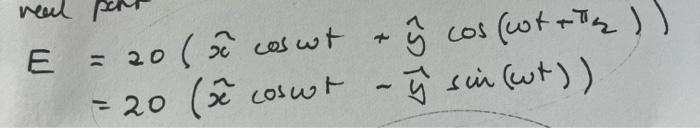 real part
E = 20 ( x̂ cos ωt + ŷ cos (ωt + π/2 ) )
= 20 ( x̂ cos ωt - ŷ sin (ωt) )